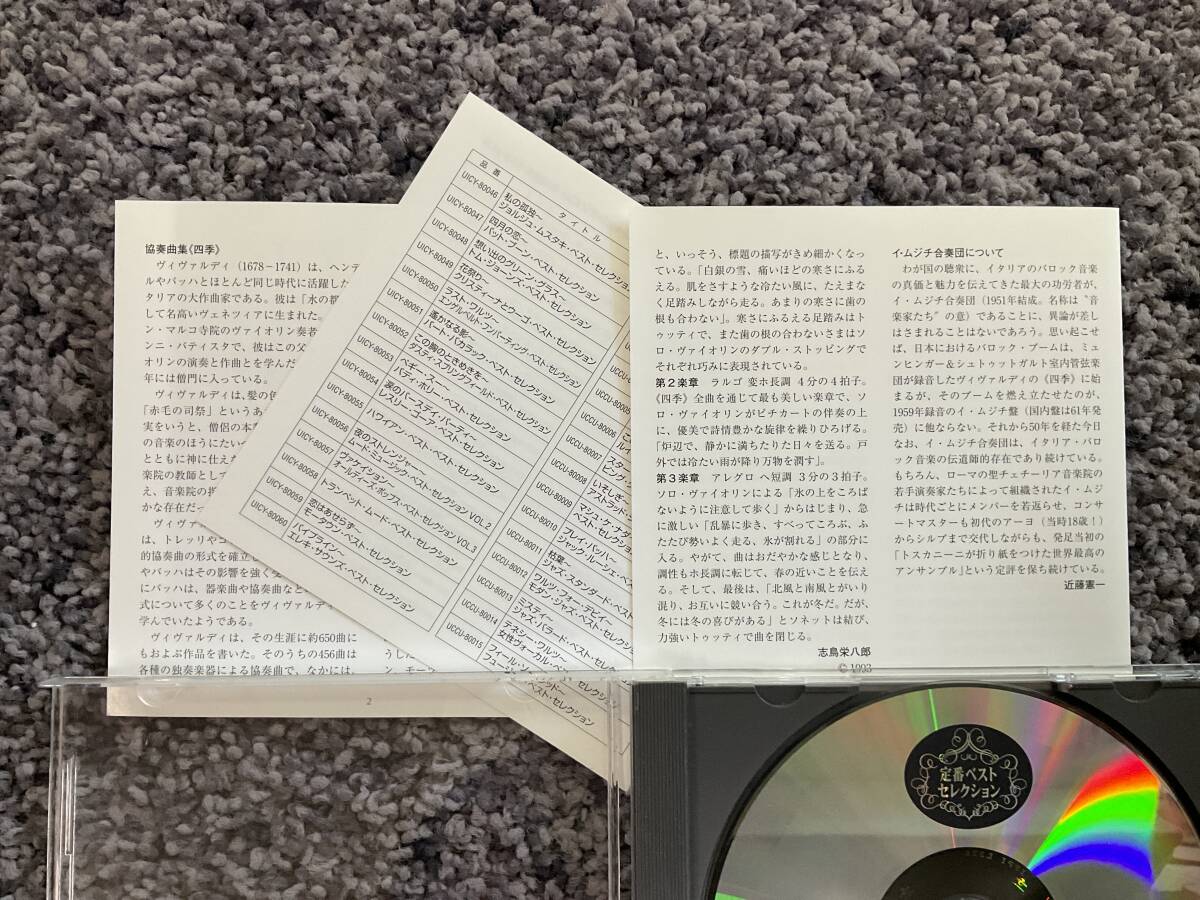 協奏曲集《四季》
ヴィヴァルディ（1678－1741）は、ヘンデ
ルやバッハとほとんど同じ時代に活躍した
タリアの大作曲家である。彼は「水の都
して名高いヴェネツィアに生まれた。
ン・マルコ寺院のヴァイオリン奏者
ンニ・バティスタで、彼はこの父
オリンの演奏と作曲とを学んだ
年には僧門に入っている。
ヴィヴァルディは、髪の色
「赤毛の司祭」というあ
実をいうと、僧侶の本
の音楽のほうにたいへ
とともに神に仕えた
楽院の教師として
え、音楽院の
かな存在だっ
ヴィヴァ
は、トレッリやコ
的協奏曲の形式を確立し
やバッハはその影響を強く受
にバッハは、器楽曲や協奏曲など
式について多くのことをヴィヴァルディ
学んでいたようである。
ヴィヴァルディは、その生涯に約650曲に
もおよぶ作品を書いた。そのうちの456曲は
各種の独奏楽器による協奏曲で、なかには、
2
うした
ン、モーツ
品番
タイトル
UICY-80046 私の孤独～
ジョルジュ・ムスタキ・ベスト・セレクション
UICY-80047 四月の恋～
パット・ブーン・ベスト・セレクション
UICY-80048 想い出のグリーン・グラス～
トム・ジョーンズ・ベスト・セレクション
UICY-80049 花祭り～
クリスティーナとウーゴ・ベスト・セレクション
UICY-80050 ラスト・ワルツ～
エンゲルベルト・フンパーディンク・ベスト・セレクション
UICY-80051 遥かなる影～
バート・バカラック・ベスト・セレクション
UICY-80052 この胸のときめきを～
ダスティ・スプリングフィールド・ベスト・セレクション
UICY-80053 ペギー・スー～
バディ・ホリー・ベスト・セレクション
UICY-80054 涙のバースデイ・パーティー～
レスリー・ゴーア・ベスト・セレクション
UICY-80055 ハワイアン・ベスト・セレクション
UICY-80056 夜のストレンジャー～
ムード・ミュージック・ベスト・セレクション VOL.2
UICY-80057 ヴァケイション～
オールディーズ・ポップス・ベスト・セレクション VOL.3
UICY-80058 トランペット・ムード・ベスト・セレクション
UICY-80059 恋はあせらず～
モータウン・ベスト・セレクション
UICY-80060 パイプライン～
エレキ・サウンズ・ベスト・セレクション
UCCU-80005
UCCU-80006
UCCU-80007
UCCU-80008 いそしぎ～
アストラッド・
UCCU-80009 マシュ・ケ・ナダ
ベスト・セレクション
UCCU-80010 プレイ・バッハ～
ジャック・ルーシェ・ベスト・セレ
UCCU-80011 枯葉～
ジャズ・スタンダード・ベスト
UCCU-80012 ワルツ・フォー・デビイ～
モダン・ジャズ・ベスト・セレクション
UCCU-80013 ミスティ～
ジャズ・バラード・ベスト・セレクション
UCCU-80014 テネシー・ワルツ～
女性ヴォーカル・ベスト・セレク
UCCU-80015 フィール・ソー
フュージョン・ベスト・セレクション
と、いっそう、標題の描写がきめ細かくなっ
ている。「白銀の雪、痛いほどの寒さにふる
える。肌をさすような冷たい風に、たえまな
く足踏みしながら走る。あまりの寒さに歯の
根も合わない」。寒さにふるえる足踏みはト
ゥッティで、また歯の根の合わないさまはソ
ロ・ヴァイオリンのダブル・ストッピングで
それぞれ巧みに表現されている。
第2楽章 ラルゴ 変ホ長調 4分の4拍子。
《四季》全曲を通じて最も美しい楽章で、ソ
ロ・ヴァイオリンがピチカートの伴奏の上
に、優美で詩情豊かな旋律を繰りひろげる。
「炉辺で、静かに満ちたりた日々を送る。戸
外では冷たい雨が降り万物を潤す」。
第3楽章 アレグロ ヘ短調 3分の3拍子。
ソロ・ヴァイオリンによる「氷の上をころば
ないように注意して歩く」からはじまり、急
に激しい「乱暴に歩き、すべってころぶ、ふ
たたび勢いよく走る、氷が割れる」の部分に
入る。やがて、曲はおだやかな感じとなり、
調性もホ長調に転じて、春の近いことを伝え
る。そして、最後は、「北風と南風とがいり
混り、お互いに競い合う。これが冬だ。だが、
冬には冬の喜びがある」とソネットは結び、
力強いトゥッティで曲を閉じる。
志鳥栄八郎
© 1993
イ・ムジチ合奏団について
わが国の聴衆に、イタリアのバロック音楽
の真価と魅力を伝えてきた最大の功労者が、
イ・ムジチ合奏団（1951年結成。名称は“音
楽家たち”の意）であることに、異論が差し
はさまれることはないであろう。思い起こせ
ば、日本におけるバロック・ブームは、ミュ
ンヒンガー＆シュトゥットガルト室内管弦楽
団が録音したヴィヴァルディの《四季》に始
まるが、そのブームを燃え立たせたのが、
1959年録音のイ・ムジチ盤（国内盤は61年発
売）に他ならない。それから50年を経た今日
なお、イ・ムジチ合奏団は、イタリア・バロ
ック音楽の伝道師的存在であり続けている。
もちろん、ローマの聖チェチーリア音楽院の
若手演奏家たちによって組織されたイ・ムジ
チは時代ごとにメンバーを若返らせ、コンサ
ートマスターも初代のアーヨ（当時18歳！）
からシルブまで交代しながらも、発足当初の
「トスカニーニが折り紙をつけた世界最高の
アンサンブル」という定評を保ち続けている。
近藤憲一
定番ベスト
セレクション